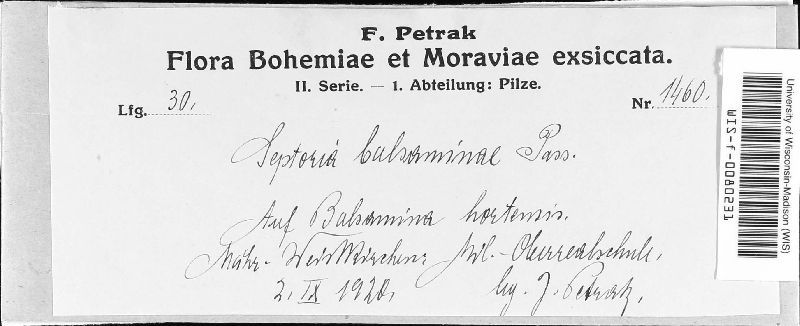 F. Petrak
Flora Bohemiae et Moraviae exsiccata.
II. Serie. — 1. Abteilung: Pilze.
Lfg. 30.
Nr. 1460.
Septoria balsaminae Pass.
Auf Balsamina hortensis.
Mähr.-Weisskirchen: Mil.-Oberrealschule,
2. IX 1920,
lg. J. Petrak.
University of Wisconsin-Madison (WIS)
WIS-f-0080231